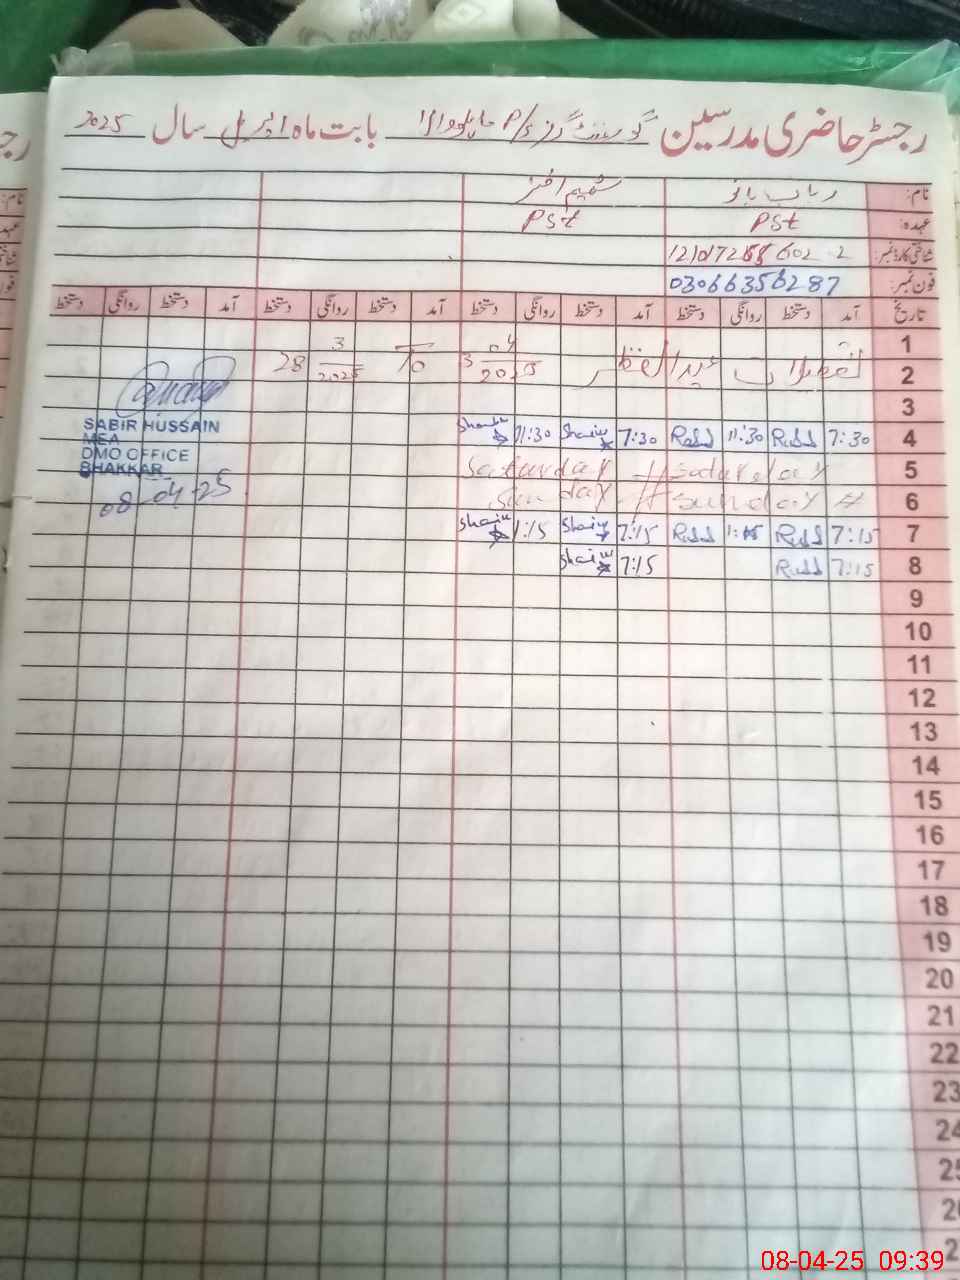 رجسٹر حاضری مدرسین گورنمنٹ گرلز P/S بابت ماہ اپریل سال 2025
نام: رباب بانو شمیم اختر
عہدہ: PSt PSt
شناختی کارڈ نمبر:
فون نمبر: 03066356287
تاریخ آمد دستخط روانگی دستخط آمد دستخط روانگی دستخط آمد دستخط روانگی دستخط آمد دستخط روانگی دستخط
1
2 تعطیلات عیدالفطر 3 04 2025 To 28 3 2025
3
4 7:30 11:30 7:30 11:30
5 Saturday # Saturday
6 # Sunday # Sunday
7 7:15 1:15 7:15 1:15
8 7:15 7:15
SABIR HUSSAIN
MEA
DMO OFFICE
BHAKKAR
08-04-25
9
10
11
12
13
14
15
16
17
18
19
20
21
22
23
24
08-04-25 09:39